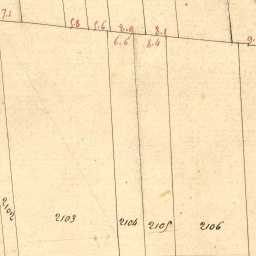 7.1
5.8 5.6 8.1
6.6 8.4
2102
2103 2104 2105 2106